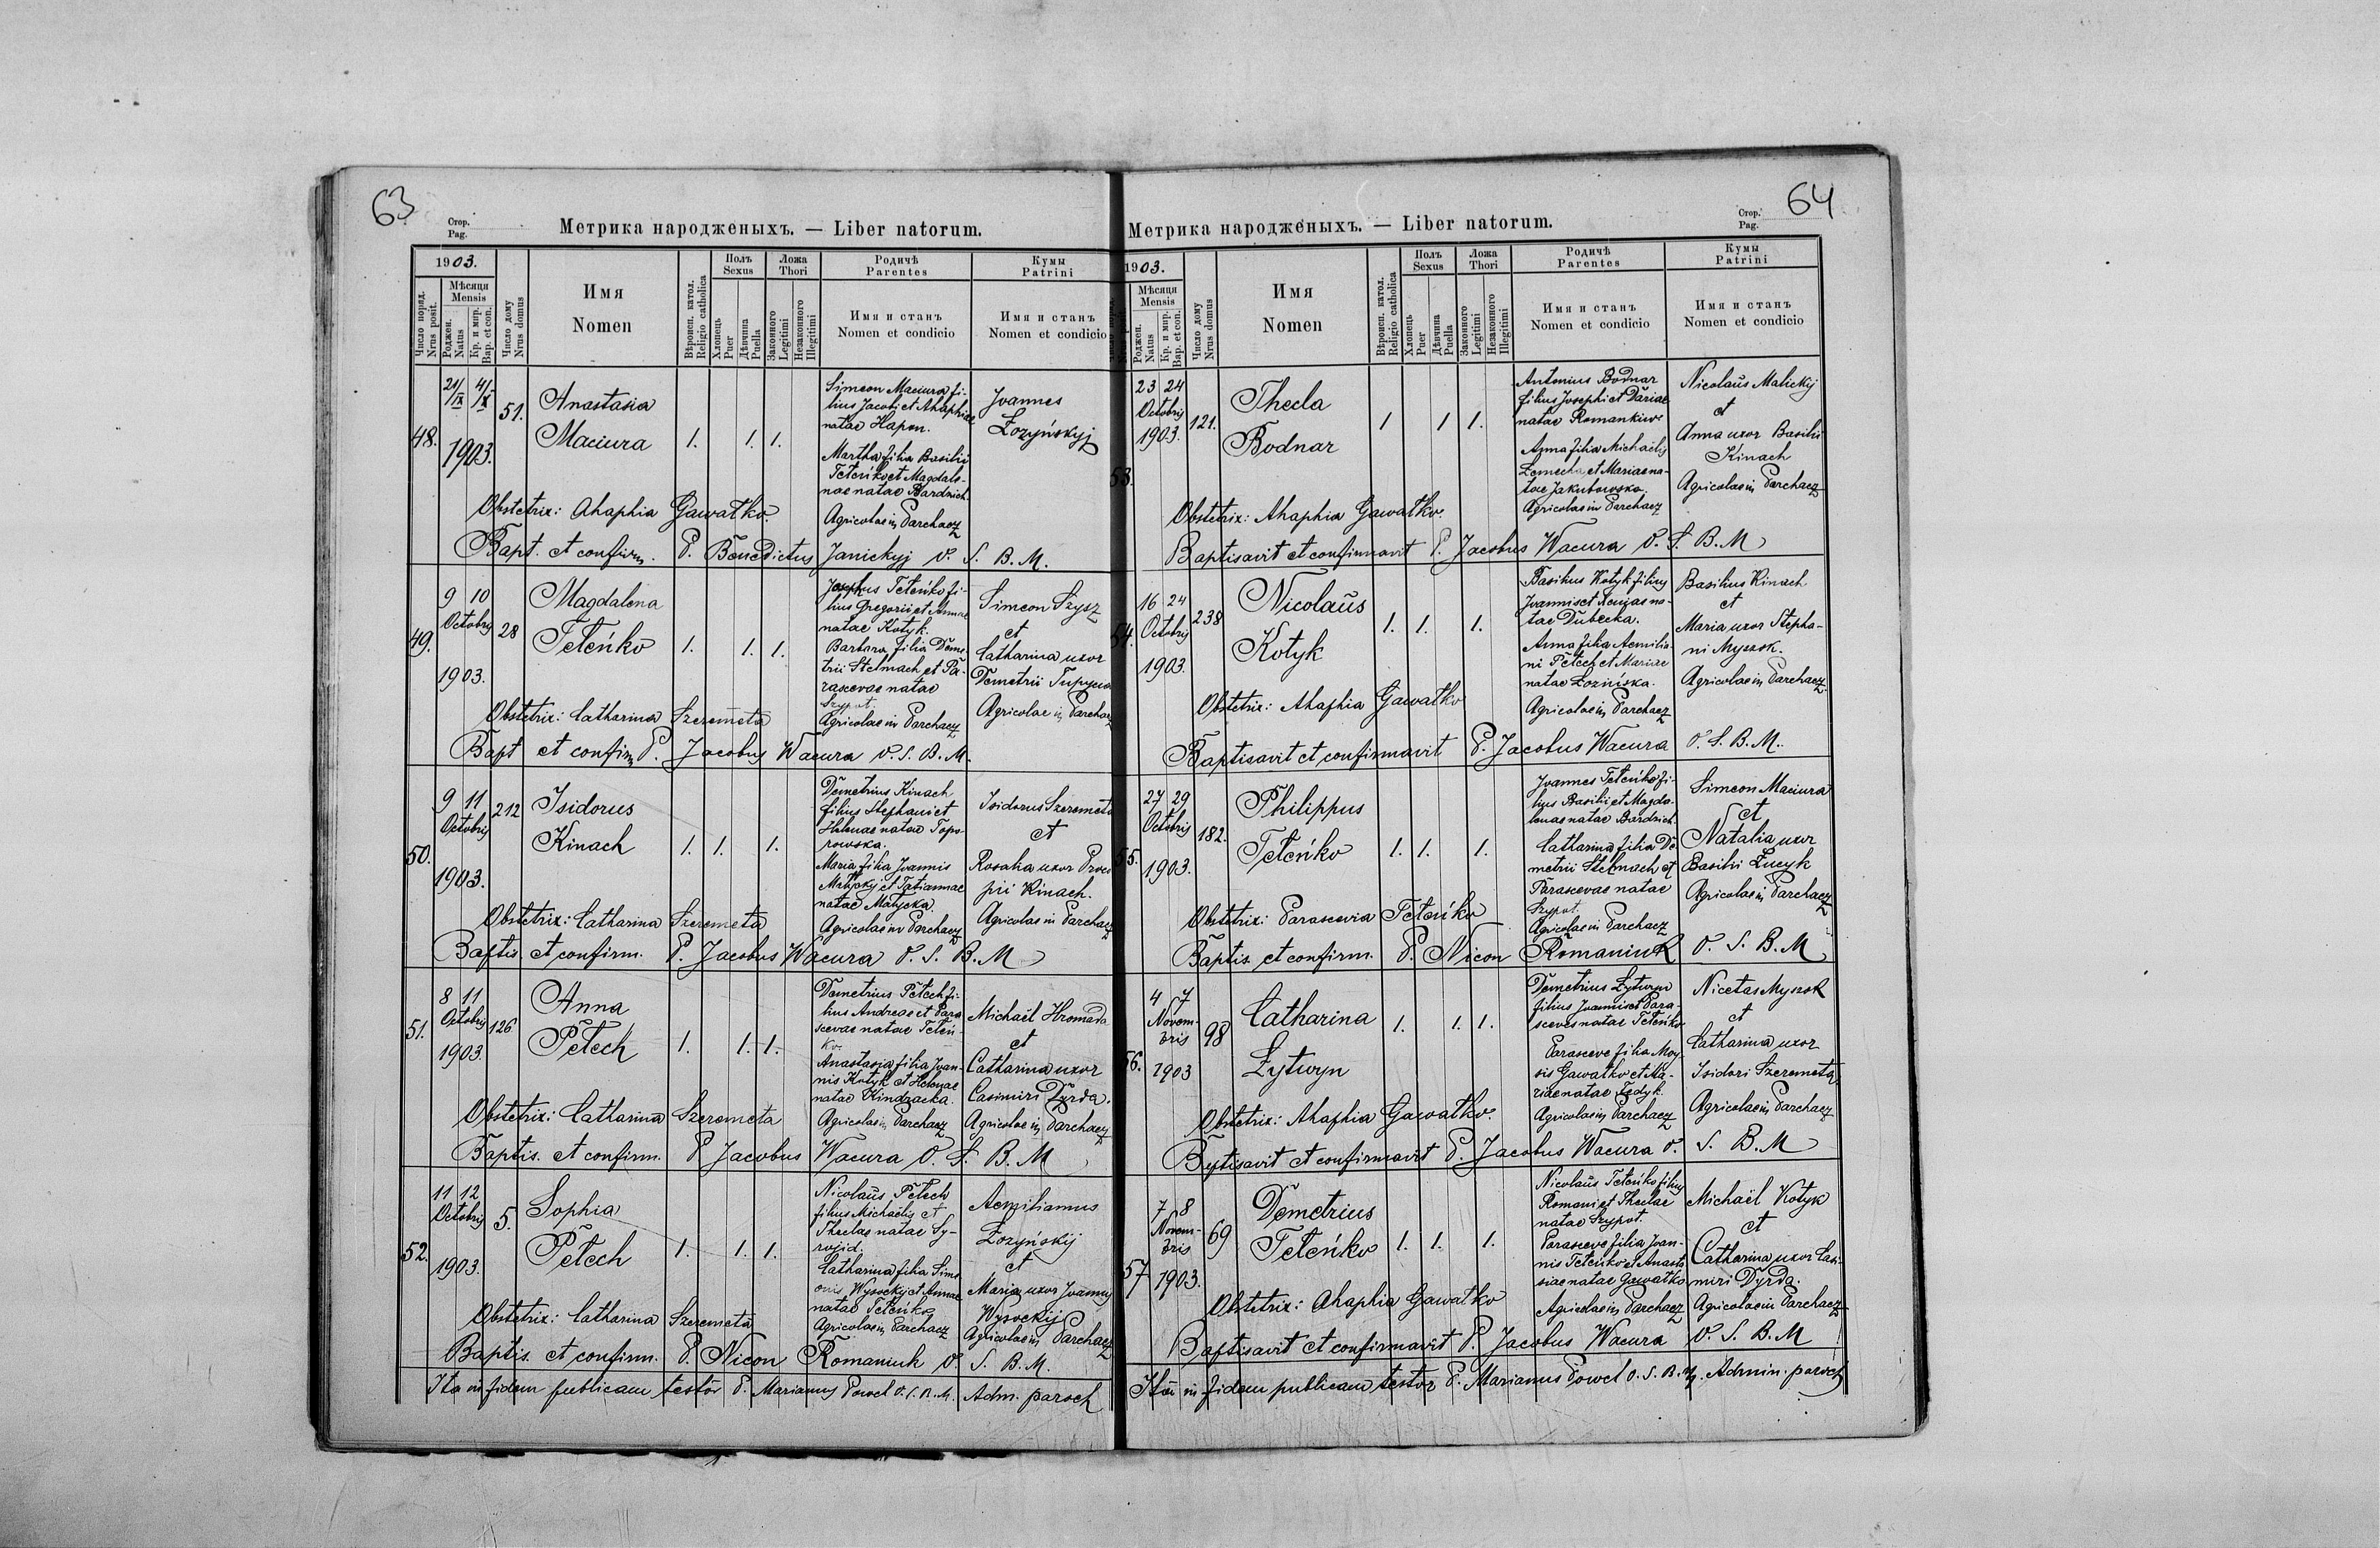 63
Стор.
Pag.
Метрика народженыхъ. — Liber natorum.
1903.
Число поряд.
Nrus posit.
Мѣсяця
Mensis
Роджен.
Natus
Кр. и мѵр.
Bap. et con.
Число дому
Nrus domus
Имя
Nomen
Вѣроисп. катол.
Religio catholica
Полъ
Sexus
Хлопець
Puer
Дѣвчина
Puella
Ложа
Thori
Законного
Legitimi
Незаконного
Illegitimi
Родичѣ
Parentes
Имя и станъ
Nomen et condicio
Кумы
Patrini
Имя и станъ
Nomen et condicio
48.
21/IX 4/X
1903.
51.
Anastasia
Maciura
1. 1. 1.
Simeon Maciura fi-
lius Jacobi et Ahaphiae
natae Hapon.
Martha filia Basilii
Teteńko et Magdale-
nae natae Bardzich.
Agricolae in Parchacz
Joannes
Łozyńskyj
Obstetrix: Ahaphia Gawałko.
Bapt. et confirm. P. Benedictus Janickyj O. S. B. M.
49.
9 10
Octobris
1903.
28
Magdalena
Teteńko
1. 1. 1.
Josephus Teteńko fi-
lius Gregorii et Annae
natae Kotyk.
Barbara filia Deme-
trii Stelmach et Pa-
rascevae natae
Szypot.
Agricolae in Parchacz
Simeon Szysz
et
Catharina uxor
Demetrii
Agricolae in Parchacz
Obstetrix: Catharina Szeremeta
Bapt et confirm P. Jacobus Wacura O. S. B. M.
50.
9 11
Octobris
1903.
212
Isidorus
Kinach
1. 1. 1.
Demetrius Kinach
filius Stephani et
Helenae natae Topo-
rowska.
Maria filia Joannis
Matyckyj et Tatiannae
natae Matycka.
Agricolae in Parchacz
Isidorus Szeremeta
et
Rosalia uxor Proco
pii Kinach.
Agricolae in Parchacz
Obstetrix: Catharina Szeremeta
Baptis et confirm. P. Jacobus Wacura O. S. B. M
51.
8 11
Octobris
1903.
126
Anna
Petech
1. 1. 1.
Demetrius Petech fi-
lius Andreae et Para
scevae natae Teteń-
ko.
Anastasia filia Joan-
nis Kotyk et Helenae
natae Kindzacka.
Agricolae in Parchacz
Michaël Hromada
et
Catharina uxor
Casimiri Dyrda.
Agricolae in Parchacz
Obstetrix: Catharina Szeremeta
Baptis. et confirm. P Jacobus Wacura O. S. B. M
52.
11 12
Octobris
1903.
5.
Sophia
Petech
1. 1. 1.
Nicolaŭs Petech
filius Michaëlis et
Theclae natae Sy-
rojid.
Catharina filia Sime
onis Wysockyj et Annae
natae Teteńko
Agricolae in Parchacz
Aemilianus
Łozyńskij
et
Maria uxor Joannis
Wysockij
Agricolae in Parchacz
Obstetrix: Catharina Szeremeta
Baptis. et confirm. P. Nicon Romaniuk O. S. B. M.
Ita in fidem publicam testor P. Marianus Powch O. S. B. M. Adm. paroch
64
Стор.
Pag.
Метрика народженыхъ. — Liber natorum.
1903.
Мѣсяця
Mensis
Роджен.
Natus
Кр. и мѵр.
Bap. et con.
Число дому
Nrus domus
Имя
Nomen
Вѣроисп. катол.
Religio catholica
Полъ
Sexus
Хлопець
Puer
Дѣвчина
Puella
Ложа
Thori
Законного
Legitimi
Незаконного
Illegitimi
Родичѣ
Parentes
Имя и станъ
Nomen et condicio
Кумы
Patrini
Имя и станъ
Nomen et condicio
53.
23 24
Octobris
1903.
121.
Thecla
Bodnar
1 1 1.
Antonius Bodnar
filius Josephi et Dariae
natae Romankiw
Anna filia Michaëlis
Lemecha et Mariae na-
tae Jakubowska.
Agricolae in Parchacz
Nicolaŭs Malickij
et
Anna uxor Basilii
Kinach
Agricolae in Parchacz
Obstetrix: Ahaphia Gawałko.
Baptisavit et confirmavit P. Jacobus Wacura O. S. B. M
54.
16 24
Octobris
1903.
238
Nicolaŭs
Kotyk
1. 1. 1.
Basilius Kotyk filius
Joannis et Xeniae na-
tae Dubecka.
Anna filia Aemilia-
ni Petech et Mariae
natae Łozińska.
Agricolae in Parchacz
Basilius Kinach
et
Maria uxor Stepha-
ni Myszok.
Agricolae in Parchacz
Obstetrix: Ahaphia Gawałko
Baptisavit et confirmavit P. Jacobus Wacura O. S. B. M.
55.
27 29
Octobris
1903.
182.
Philippus
Teteńko
1. 1. 1.
Joannes Teteńko fi-
lius Basilii et Magda-
lenae natae Bardzich.
Catharina filia De-
metrii Stelmach et
Parascevae natae
Szypot.
Agricolae in Parchacz
Simeon Maciura
et
Natalia uxor
Basilii Łucyk
Agricolae in Parchacz
Obstetrix: Parascevia Teteńko
Baptis. et confirm. P. Nicon Romaniuk O. S. B. M
56.
4 7
Novem-
bris
1903
98
Catharina
Łytwyn
1. 1. 1.
Demetrius Łytwyn
filius Joannis et Para-
scevae natae Teteńko
Parasceve filia Moy
sis Gawałko et Ma-
riae natae Fedyk.
Agricolae in Parchacz
Nicetas Myszok
et
Catharina uxor
Isidori Szeremeta
Agricolae in Parchacz
Obstetrix: Ahaphia Gawałko.
Bptisavit et confirmavit P. Jacobus Wacura O. S. B. M
57
7 8
Novem-
bris
1903.
69
Demetrius
Teteńko
1. 1. 1.
Nicolaŭs Teteńko filius
Romani et Theclae
natae Szypot.
Parasceve filia Joan-
nis Teteńko et Anasta
siae natae Gawałko
Agricolae in Parchacz
Michaël Kotyk
et
Catharina uxor Casi-
miri Dyrda.
Agricolae in Parchacz
Obstetrix: Ahaphia Gawałko
Baptisavit et confirmavit P. Jacobus Wacura O. S. B. M
Ita in fidem publicam testor P. Marianus Powch O. S. B. M. Admin. paroch